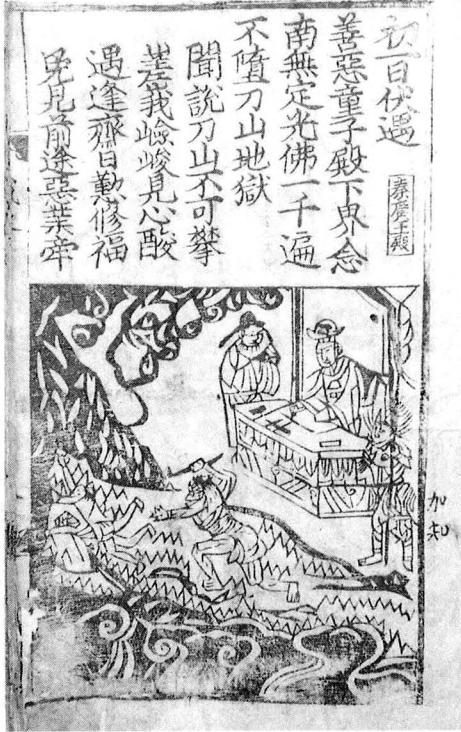 初一日伏遇
秦廣王殿
善惡童子殿下界念
南無定光佛一千遍
不墮刀山地獄
聞說刀山不可攀
嵳峩嶮峻見心酸
遇逢齋日勤修福
免見前途惡業牽
加
知